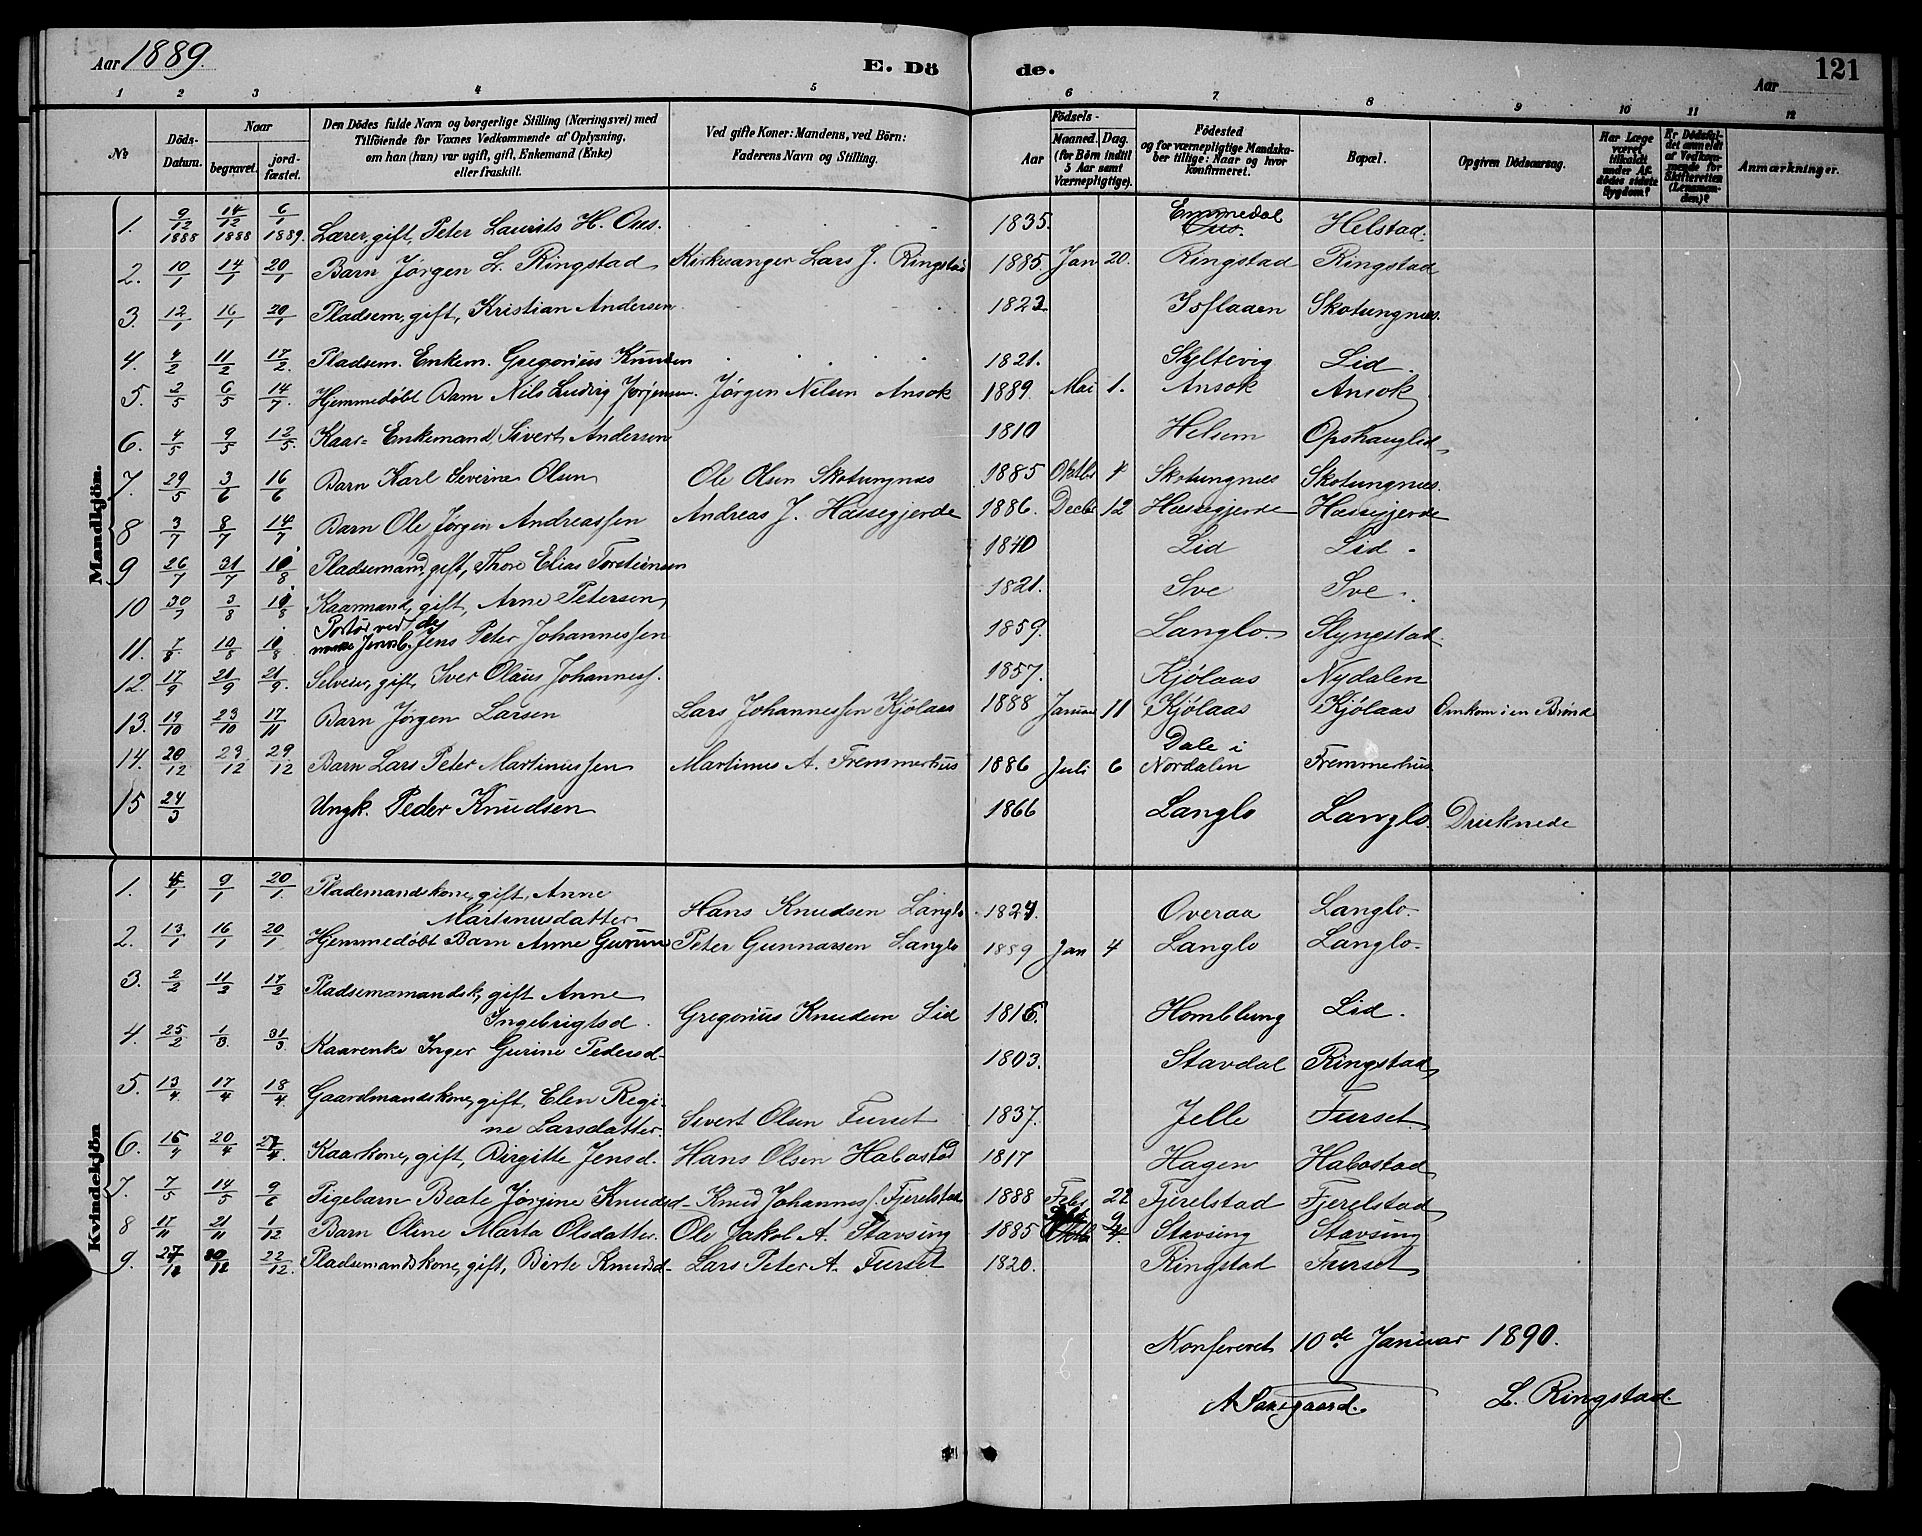 Aar 1889.
E. Dö de.
Aar
121
1 2 3 4 5 6 7 8 9 10 11 12
No
Döds-Datum.
Naar begravet. jordfæstet.
Den Dödes fulde Navn og borgerlige Stilling (Næringsvei) med Tilföiende for Voxnes Vedkommende af Oplysning, om han (hun) var ugift, gift, Enkemand (Enke) eller fraskilt.
Ved gifte Koner: Mandens, ved Börn: Faderens Navn og Stilling.
Födsels-
Aar Maaned. Dag. (for Börn indtil 5 Aar samt Værnepligtige).
Födested og for værnepligtige Mandskaber tillige: Naar og hvor konfirmeret.
Bopæl.
Opgiven Dödsaarsag.
Har Læge været tilkaldt under Afdödes sidste Sygdom?
Er Dödsfaldet anmeldt af Vedkommende for Skifteretten (Lensmanden)?
Anmærkninger.
Mandkjön.
1. 9/12 1888 14/12 1888 6/1 1889. Lærer, gift, Peter Laurits H. Ous. 1835. Emmedal Ous. Helstad.
2. 10/1 14/1 20/1 Barn Jørgen L. Ringstad Kirkesanger Lars J. Ringstad 1885. Jan 20. Ringstad Ringstad
3. 12/1 16/1 20/1 Pladsem, gift, Kristian Andersen 1823 Isflaaen Skotungnæs.
4. 4/2 11/2 17/2. Pladsem. Enkem. Gregorius Knudsen 1821. Syltevig Lid.
5. 2/5 6/5 14/7. Hjemmedøbt Barn Nils Ludvig Jørgensen. Jørgen Nilsen Ansok 1889. Mai 1. Ansok Ansok
6. 4/5 9/5 12/5. Kaar-Enkemand, Sivert Andersen 1810 Helsem Opshauglid
7. 29/5 3/6 16/6 Barn Karl Severine Olsen Ole Olsen Skotungnæs 1885 Oktbr 4 Skotungnæs Skotungnæs.
8 3/7 8/7 14/7 Barn Ole Jørgen Andreassen Andreas J. Hassegjerde 1886. Decbr 12 Hassegjerde Hassegjerde
9 26/7 31/7 10/8 Pladsemand, gift, Thore Elias Torsteinsen 1840 Lid Lid.
10 30/7 3/8 10/8 Kaarmand, gift, Arne Petersen, 1821. Sve Sve.
11. 7/8 10/8 10/8 Jens Peter Johannessen 1859. Langlo. Slyngstad.
12. 17/9 21/9 21/9. Selveier, gift, Iver Olaus Johanness. 1857. Kjølaas Nydalen
13. 19/10 23/10 17/11 Barn Jørgen Larsen Lars Johannessen Kjølaas 1888 Januar 11 Kjølaas Kjølaas Omkom i en Brønd
14. 20/12 29/12 29/12 Barn Lars Peter Martinussen Martinus A. Fremmerhus 1886 Juli 6 Dale i Nordalen Fremmerhus
15 24/3 Ungk. Peder Knudsen 1866 Langlo Langlo. Druknede
Kvindekjön
1. 4/1 9/1 20/1. Pladsemandskone, gift, Anne Martinusdatter Hans Knudsen Langlo 1824. Overaa Langlo.
2. 13/1 16/1 20/1 Hjemmedøbt Barn Anne Gurine Peter Gunnarsen Langlo 1889 Jan 4 Langlo Langlo.
3. 2/2 11/2 17/2 Pladsemamandsk, gift Anne Ingebrigtsd. Gregorius Knudsen Lid 1816. Homblung Lid.
4. 25/2 1/3 31/3. Kaarenke Inger Gurine Pedersd. 1803. Stavdal Ringstad
5. 13/4 17/4 18/4. Gaardmandskone, gift, Elen Regine Larsdatter. Sivert Olsen Furset 1837. Jelle Furset
6. 15/4 20/4 27/4. Kaarkone, gift, Birgitte Jensd. Hans Olsen Habostad 1817 Hagen Habostad
7. 7/5 14/5 9/6 Pigebarn Beate Jørgine Knudsd. Knud Johannes Fjerelstad 1888 Febr 22 Fjerelstad Fjerelstad
8 17/11 21/11 1/12 Barn Oline Marta Olsdatter. Ole Jakob A. Stavseng 1885 9 Stavseng Stavseng
9. 27/12 30/12 22/12. Pladsemandskone, gift, Birte Knudsd. Lars Peter A. Furset 1820. Ringstad Furset
Konfereret 10de Januar 1890.
A Saxegaard. L. Ringstad.